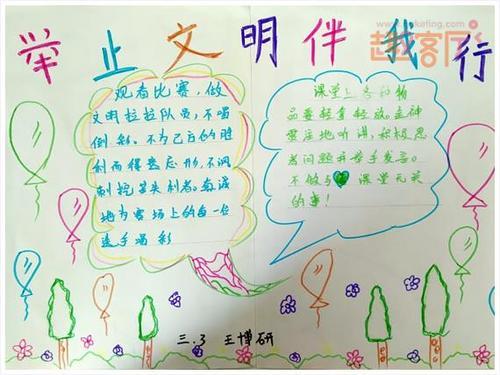 举止文明伴我行
观看比赛,做
文明拉拉队员,不喝
倒彩。不为己方的胜
利而得意忘形,不讽
刺挖苦失利者。真诚
地为赛场上的每一位
选手喝彩
课堂上
品要轻拿轻放。
地听讲,积极思
考问题并举手发言。
不做与课堂无关
的事!
三.3 王博研
趣客